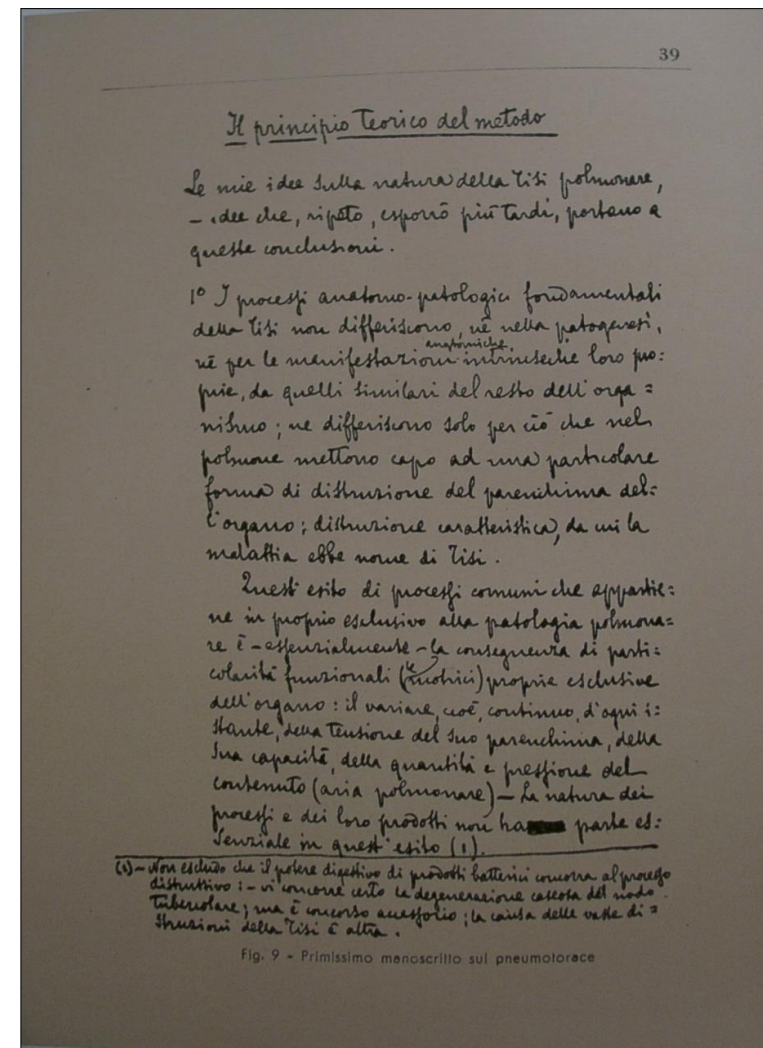 39
Il principio Teorico del metodo
Le mie idee sulla natura della Tisi polmonare,
– idee che, ripeto, esporrò più tardi, portano a
queste conclusioni.
1° I processi anatomo-patologici fondamentali
della Tisi non differiscono, nè nella patogenesi,
anatomiche
nè per le manifestazioni intrinseche loro pro=
prie, da quelli similari del resto dell'orga=
nismo; ne differiscono solo per ciò che nel
polmone mettono capo ad una particolare
forma di distruzione del parenchima del=
l'organo; distruzione caratteristica, da cui la
malattia ebbe nome di Tisi.
Quest'esito di processi comuni che appartie=
ne in proprio esclusivo alla patologia polmona=
re è – essenzialmente – la conseguenza di parti=
colarità funzionali (motrici) proprie esclusive
dell'organo: il variare, cioè, continuo, d'ogni i=
stante, della Tensione del suo parenchima, della
sua capacità, della quantità e pressione del
contenuto (aria polmonare) – La natura dei
processi e dei loro prodotti non ha parte es=
senziale in quest'esito (1).
(1) – Non escludo che il potere digestivo di prodotti batterici concorra al processo
distruttivo: – vi concorre certo la degenerazione caseosa del nodo
Tubercolare; ma è concorso accessorio; la causa delle vaste di=
struzioni della Tisi è altra.
Fig. 9 - Primissimo manoscritto sul pneumotorace